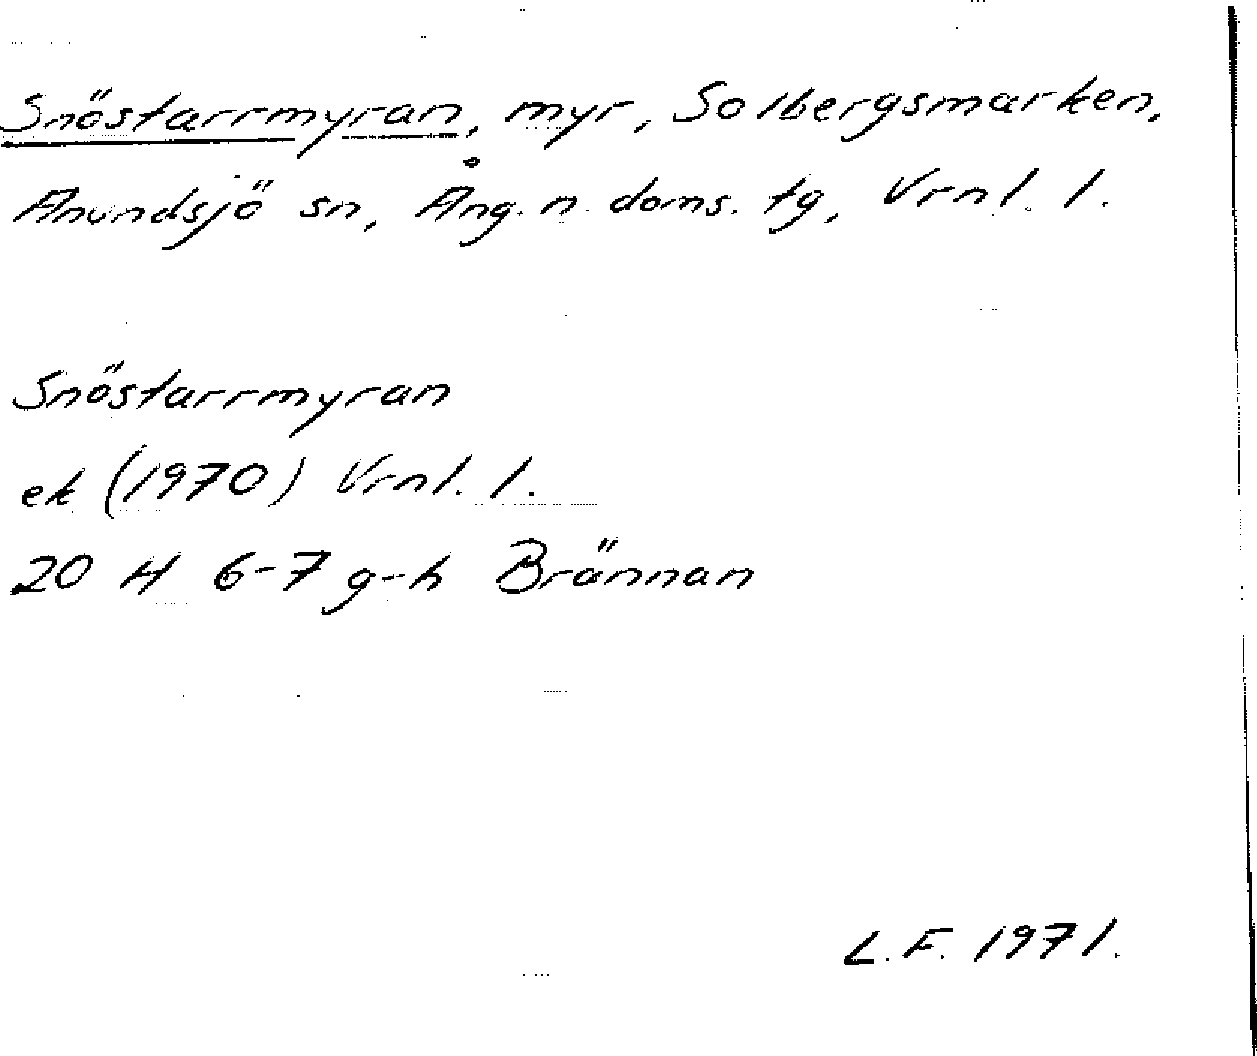 Snöstarrmyran, myr, Solbergsmarken,
Anundsjö sn, Ång. n. doms. tg, Vrnl. l.
Snöstarrmyran
ek (1970) Vrnl. l.
20 H 6-7 g-h Brännan
L.F. 1971.